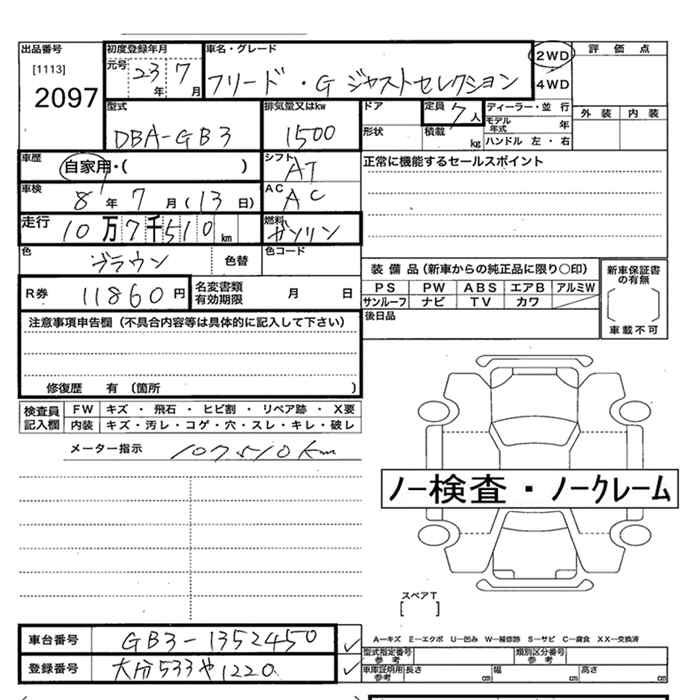 出品番号
[1113]
2097
初度登録年月
元号 23年 7月
車名・グレード
フリード・G ジャストセレクション
2WD
4WD
評価点
外装 内装
型式
DBA-GB3
排気量又はkw
1500
ドア
形状
定員 7人
積載 kg
ディーラー・並行
モデル年式 年
ハンドル 左・右
車歴
自家用・( )
シフト
AT
正常に機能するセールスポイント
車検
8年 7月(13日)
AC
AC
走行
10万7千510km
燃料
ガソリン
色
ブラウン
色替
色コード
R券 11860円
名変書類有効期限 月 日
装備品(新車からの純正品に限り○印)
PS PW ABS エアB アルミW
サンルーフ ナビ TV カワ
後日品
新車保証書の有無
車載不可
注意事項申告欄(不具合内容等は具体的に記入して下さい)
修復歴 有(箇所 )
検査員記入欄
FW キズ・飛石・ヒビ割・リペア跡・X要
内装 キズ・汚レ・コゲ・穴・スレ・キレ・破レ
メーター指示 107510km
ノー検査・ノークレーム
スペアT
[ ]
A―キズ E―エクボ U―凹み W―補修跡 S―サビ C―腐食 XX―交換済
車台番号 GB3-1352450
登録番号 大分533や1220
型式指定番号参考
類別区分番号参考
車庫証明用参考 長さ cm 幅 cm 高さ cm